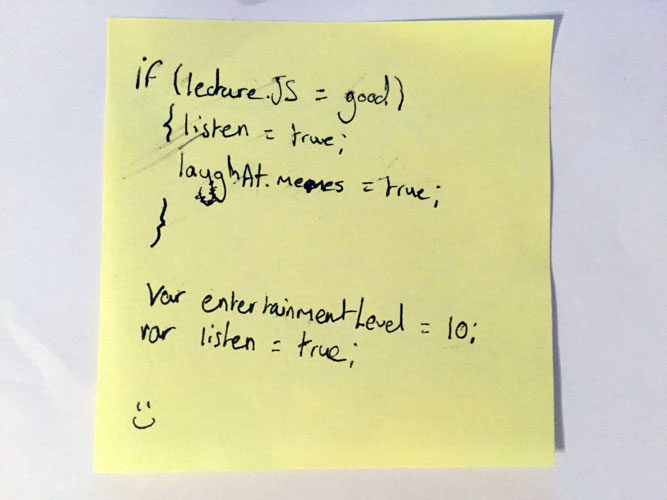 if (lecture.JS = good)
{listen = true;
laughAt.memes = true;
}
var entertainmentLevel = 10;
var listen = true;